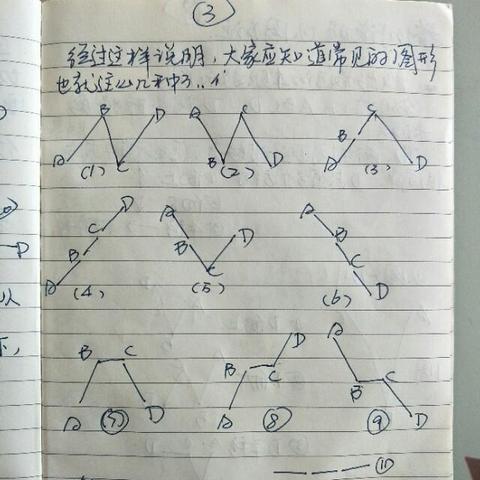 ③
经过这样说明,大家应知道常见的图形
也就这么几种了..个
B D A C C
A C B D A B D
(1) (2) (3)
D A A
C B D B
B C C
A D
(4) (5) (6)
B C D A
B C B C
A D A D
⑦ ⑧ ⑨
⑪